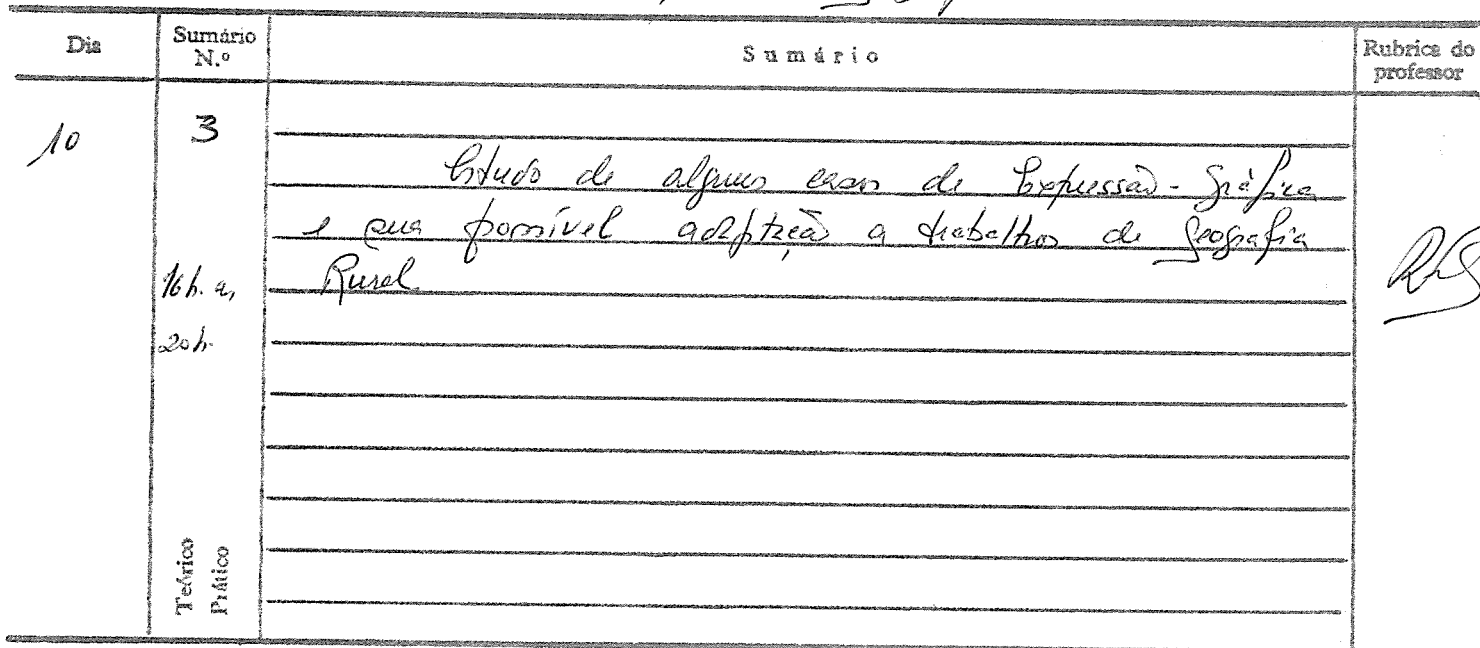 Dia
Sumário N.º
Sumário
Rubrica do professor
10
3
16h. a, 20h.
Estudo de alguns casos de Expressão-Gráfica
e sua possível adaptação a trabalhos de Geografia
Rural
Teórico
Prático